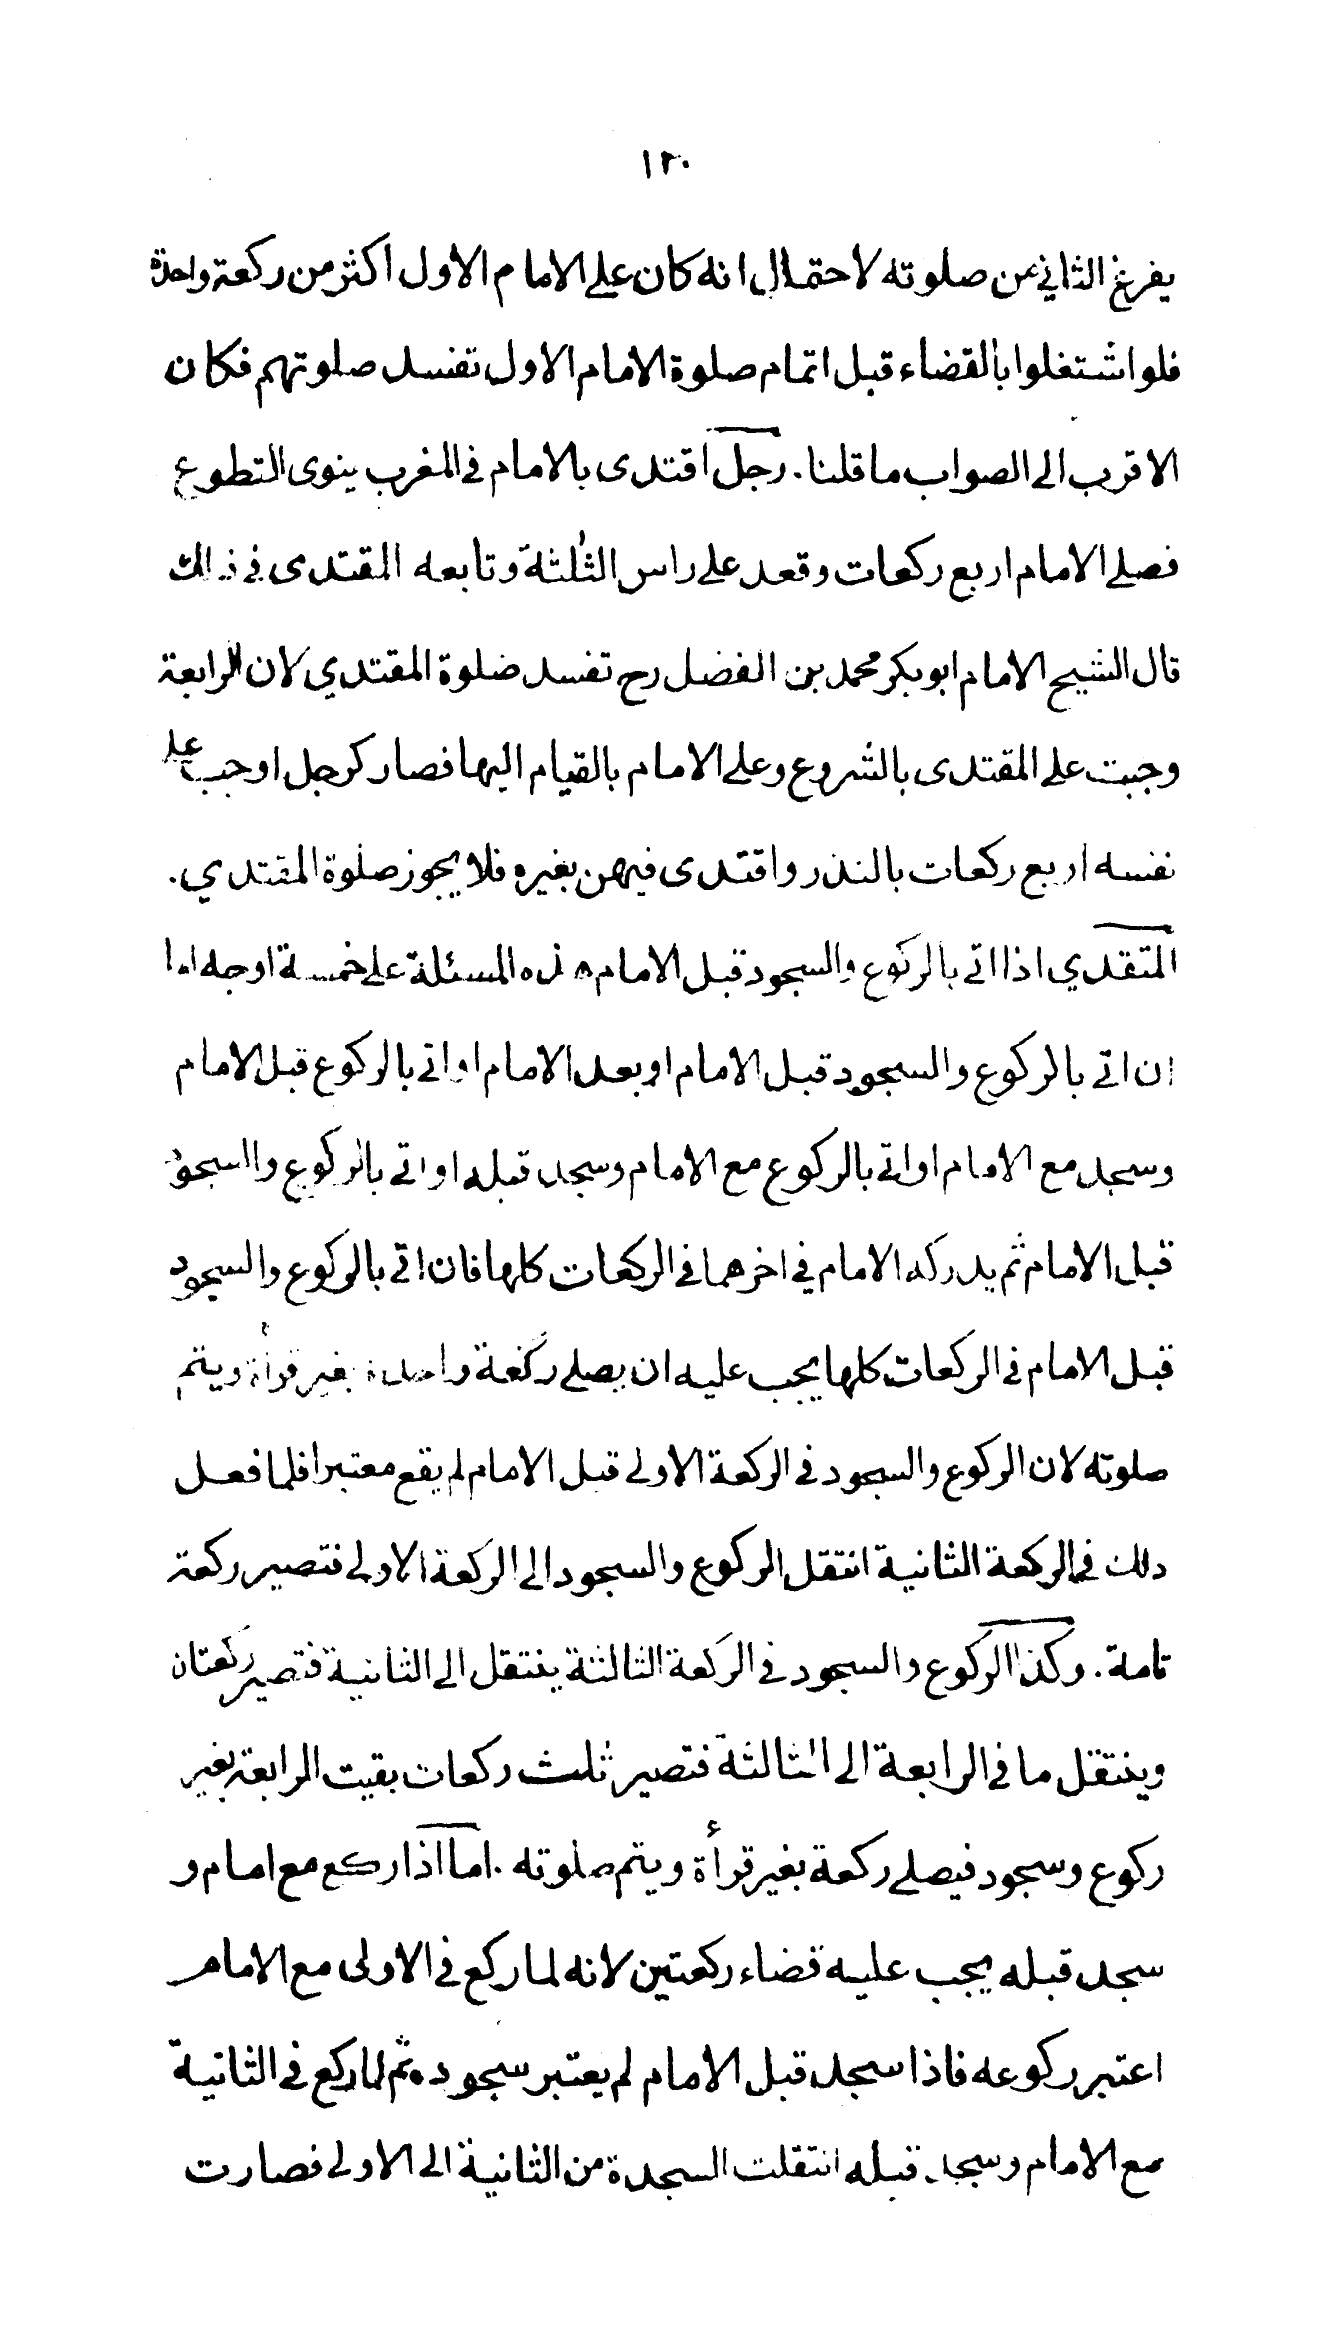 ١٢٠
يفرغ الثاني عن صلوته لاحتمال انه كان على الامام الاول اكثر من ركعة واحدة
فلو اشتغلوا بالقضاء قبل اتمام صلوة الامام الاول تفسد صلوتهم فكان
الاقرب الى الصواب ما قلنا. رجل اقتدى بالامام في المغرب ينوى التطوع
فصلى الامام اربع ركعات وقعد على راس الثلثة وتابعه المقتدى في ذالك
قال الشيخ الامام ابو بكر محمد بن الفضل رح تفسد صلوة المقتدي لان الرابعة
وجبت على المقتدى بالشروع وعلى الامام بالقيام اليها فصار كرجل اوجب على
نفسه اربع ركعات بالنذر واقتدى فيهن بغيره فلا يجوز صلوة المقتدي.
المتقدي اذا اتى بالركوع والسجود قبل الامام هذه المسئلة على خمسة اوجه اما
ان اتى بالركوع والسجود قبل الامام او بعد الامام او اتى بالركوع قبل الامام
وسجد مع الامام او اتى بالركوع مع الامام وسجد قبله او اتى بالركوع والسجود
قبل الامام ثم يدركه الامام في اخرهما في الركعات كلها فان اتى بالركوع والسجود
قبل الامام في الركعات كلها يجب عليه ان يصلى ركعة واحدة بغير قرأة ويتم
صلوته لان الركوع والسجود في الركعة الاولى قبل الامام لم يقع معتبرا فلما فعل
ذلك في الركعة الثانية انتقل الركوع والسجود الى الركعة الاولى فتصير ركعة
تامة. وكذا الركوع والسجود في الركعة الثالثة ينتقل الى الثانية فتصير ركعتان
وينتقل ما في الرابعة الى الثالثة فتصير ثلث ركعات بقيت الرابعة بغير
ركوع وسجود فيصلى ركعة بغير قرأة ويتم صلوته. اما اذا ركع مع امام و
سجد قبله يجب عليه قضاء ركعتين لانه لما ركع في الاولى مع الامام
اعتبر ركوعه فاذا سجد قبل الامام لم يعتبر سجوده ثم لما ركع في الثانية
مع الامام وسجد قبله انتقلت السجدة من الثانية الى الاولى فصارت